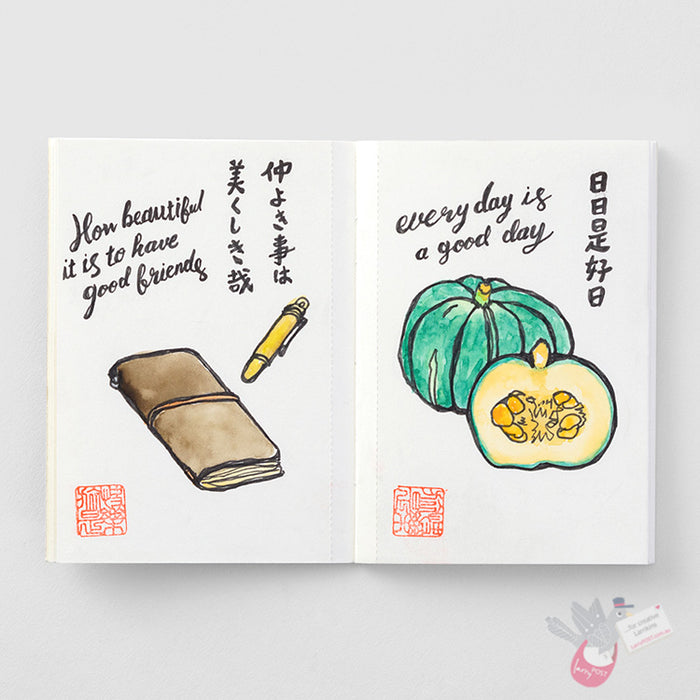 How beautiful
it is to have
good friends
仲よき事は
美くしき哉
every day is
a good day
日日是好日
...for creative
Larrikins
LarryPOST.com.au
larry
POST